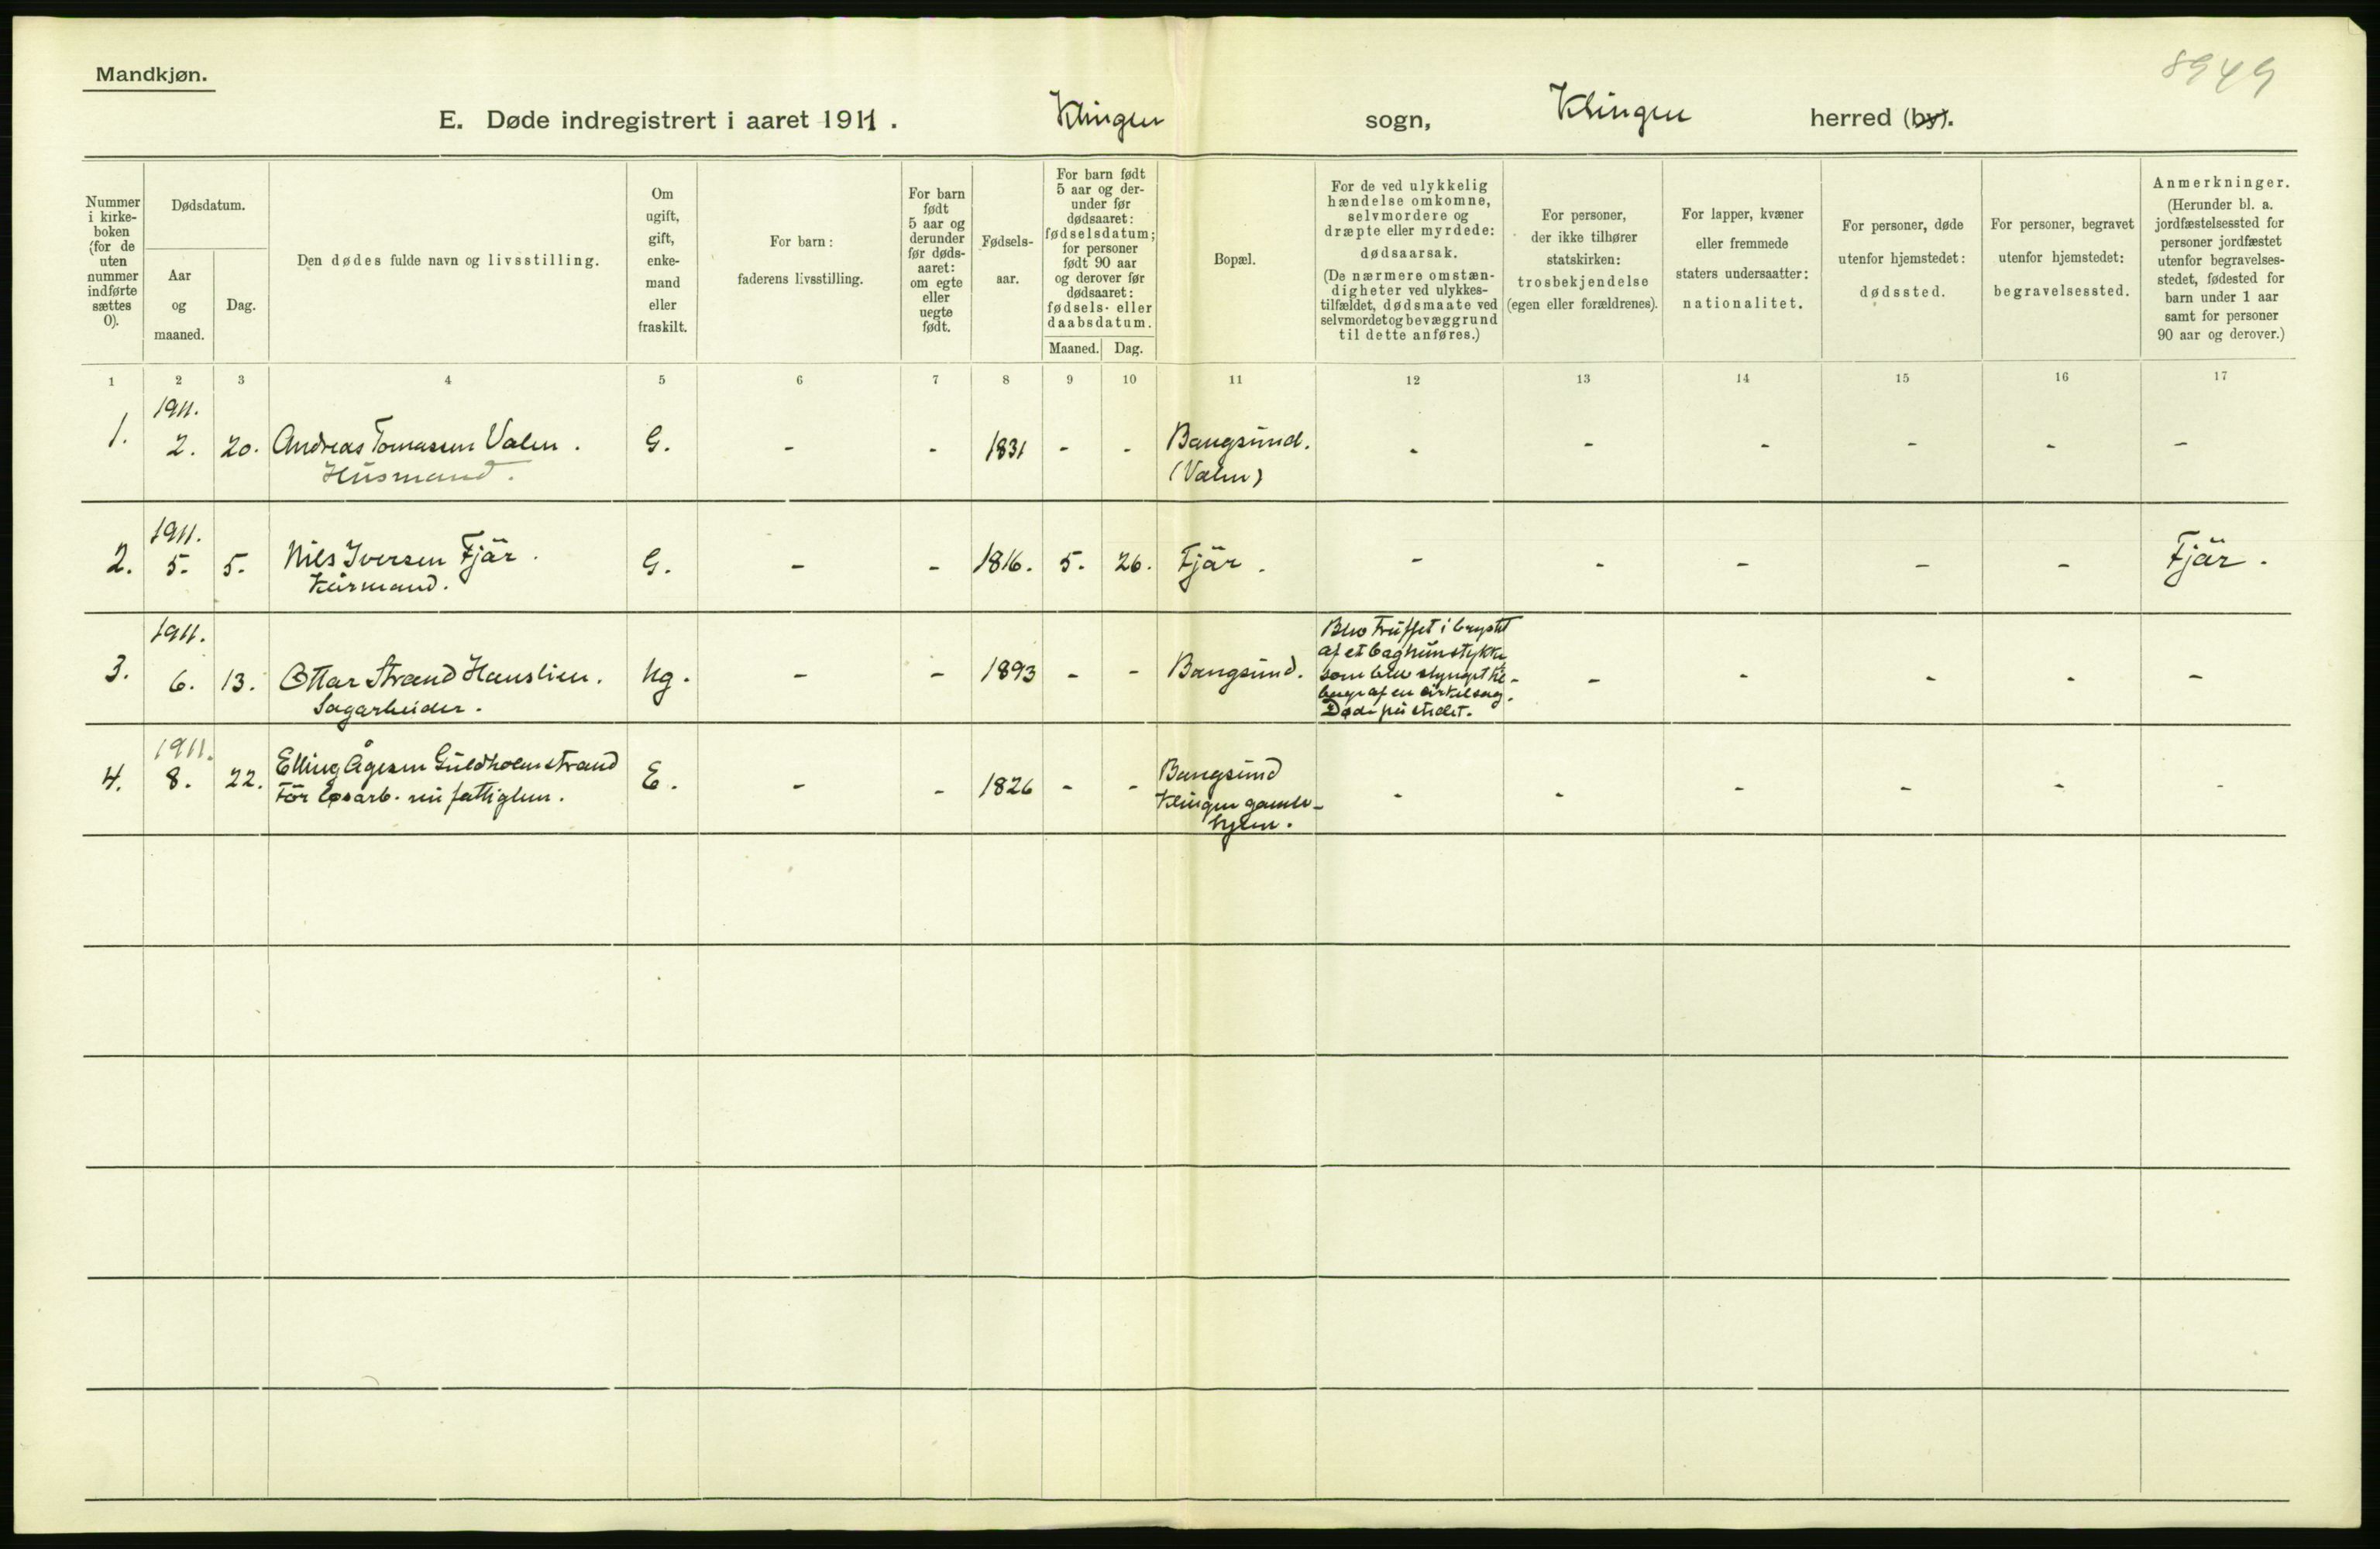 Mandkjøn.
8949
E. Døde indregistrert i aaret 1911. Klingen sogn, Klingen herred (by).
Nummer
i kirke-
boken
(for de
uten
nummer
indførte
sættes
0).
Dødsdatum.
Aar
og
maaned.
Dag.
Den dødes fulde navn og livsstilling.
Om
ugift,
gift,
enke-
mand
eller
fraskilt.
For barn:
faderens livsstilling.
For barn
født
5 aar og
derunder
før døds-
aaret:
om egte
eller
uegte
født.
Fødsels-
aar.
For barn født
5 aar og der-
under før
dødsaaret:
fødselsdatum;
for personer
født 90 aar
og derover før
dødsaaret:
fødsels- eller
daabsdatum.
Maaned. Dag.
Bopæl.
For de ved ulykkelig
hændelse omkomne,
selvmordere og
dræpte eller myrdede:
dødsaarsak.
(De nærmere omstæn-
digheter ved ulykkes-
tilfældet, dødsmaate ved
selvmordet og bevæggrund
til dette anføres.)
For personer,
der ikke tilhører
statskirken:
trosbekjendelse
(egen eller forældrenes).
For lapper, kvæner
eller fremmede
staters undersaatter:
nationalitet.
For personer, døde
utenfor hjemstedet:
dødssted.
For personer, begravet
utenfor hjemstedet:
begravelsessted.
Anmerkninger.
(Herunder bl. a.
jordfæstelsessted for
personer jordfæstet
utenfor begravelses-
stedet, fødested for
barn under 1 aar
samt for personer
90 aar og derover.)
1 2 3 4 5 6 7 8 9 10 11 12 13 14 15 16 17
1911.
1. 2. 20. Andreas Tomassen Valen. G. - - 1831 - - Bangsund. - - - - - -
Husmand. (Valen)
1911.
2. 5. 5. Nils Iversen Fjär. G. - - 1816. 5. 26. Fjär. - - - - - Fjär.
Kårmand.
1911.
3. 6. 13. Ottar Strand Hanslien. Ug. - - 1893 - - Bangsund. - - - - -
Sagarbeider.
Blev truffet i brystet
af et baghunstykke
som blev slynget til-
bage af en cirkelsag.
Døde på stedet.
1911.
4. 8. 22. Elling Ågesen Guldholmstrand E. - - 1826 - - Bangsund - - - - - -
För løsarb. nu fattiglem. Klingen gamle-
hjem.